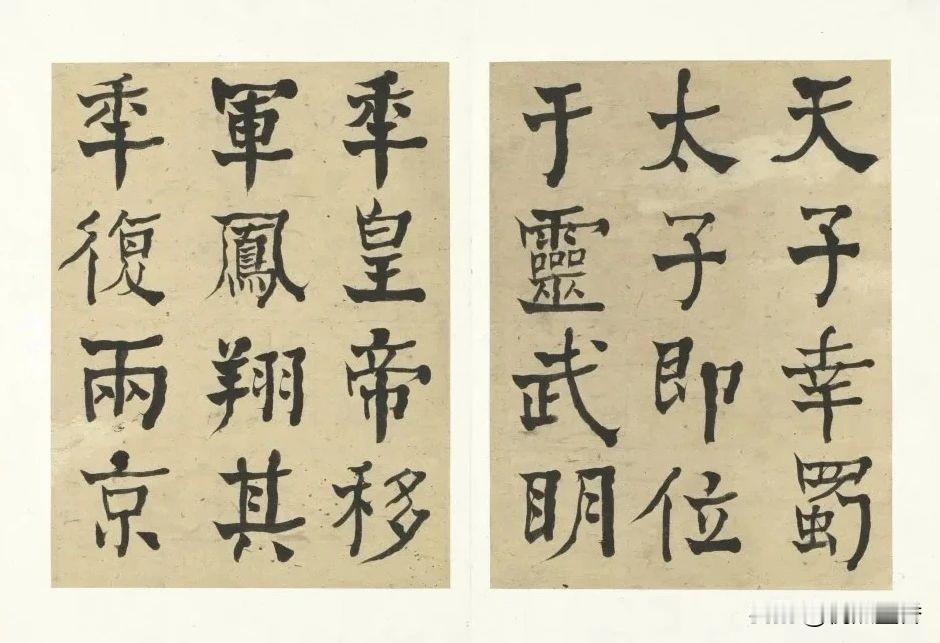 天子幸蜀
太子即位
于靈武明
秊皇帝移
軍鳳翔其
秊復兩京